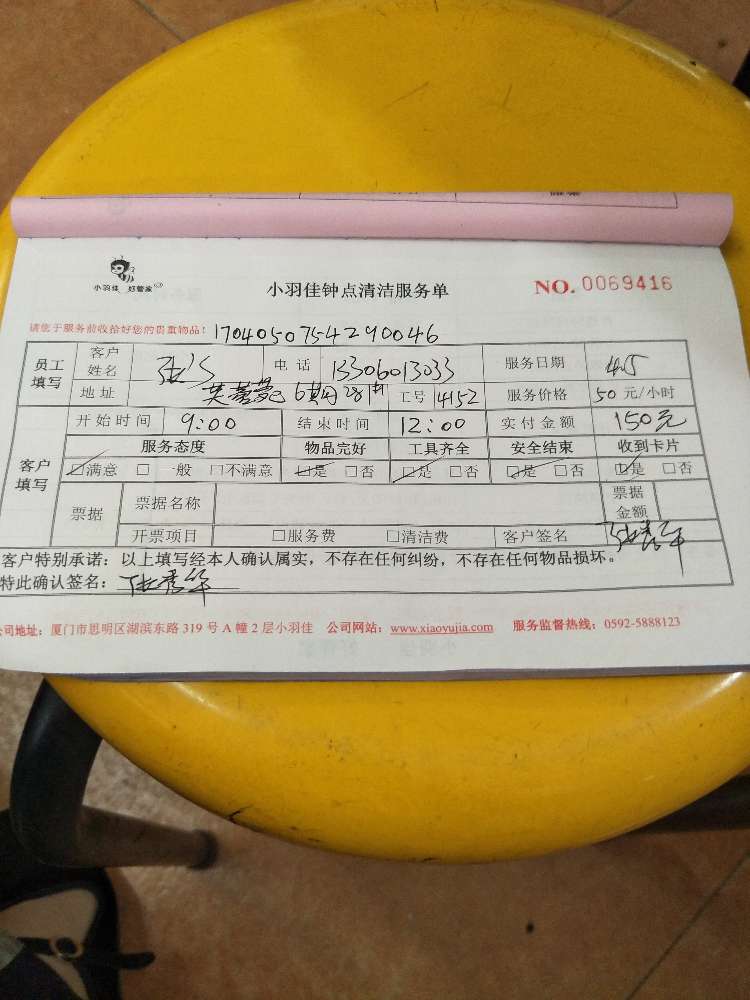 小羽佳 好管家
小羽佳钟点清洁服务单
NO. 0069416
请您于服务前收拾好您的贵重物品! 1704050754290046
员工填写 客户姓名 张 电话 13306013033 服务日期 4.5
地址 芙蓉 工号 4152 服务价格 50 元/小时
客户填写 开始时间 9:00 结束时间 12:00 实付金额 150元
服务态度 物品完好 工具齐全 安全结束 收到卡片
☑满意 □一般 □不满意 ☑是 □否 ☑是 □否 ☑是 □否 ☑是 □否
票据 票据名称 票据金额
开票项目 □服务费 □清洁费 客户签名 张秀华
客户特别承诺:以上填写经本人确认属实,不存在任何纠纷,不存在任何物品损坏。
特此确认签名: 张秀华
公司地址:厦门市思明区湖滨东路 319 号 A 幢 2 层小羽佳 公司网站:www.xiaoyujia.com 服务监督热线:0592-5888123